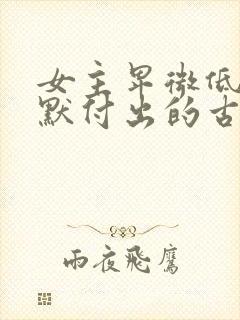 女主卑微低
默付出的古
雨夜飛鷹